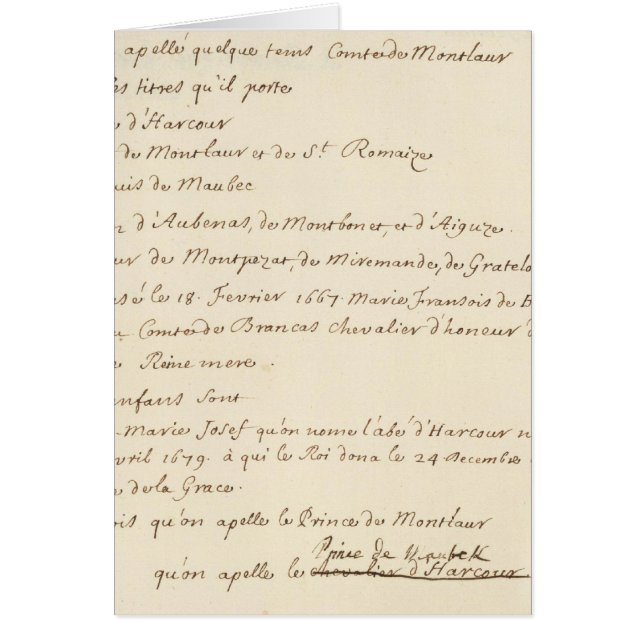 apellé quelque tems Comte de Montlaur
titres qu'il porte
d'Harcour
de Montlaur et de S.t Romaize
uis de Maubec
d'Aubenas, de Montbonet, et d'Aiguze.
ur de Montpezat, de Miremande, de Gratelo
sé le 18. Fevrier 1667. Marie Fransois de B
Comte de Brancas chevalier d'honeur d
Reine mere.
enfans sont
Marie Josef qu'on nome l'abé d'Harcour n
vril 1679. à qui le Roi dona le 24 Decembre
de la Grace.
ois qu'on apelle le Prince de Montlaur
Prince de Maubek
qu'on apelle le chevalier d'Harcour.